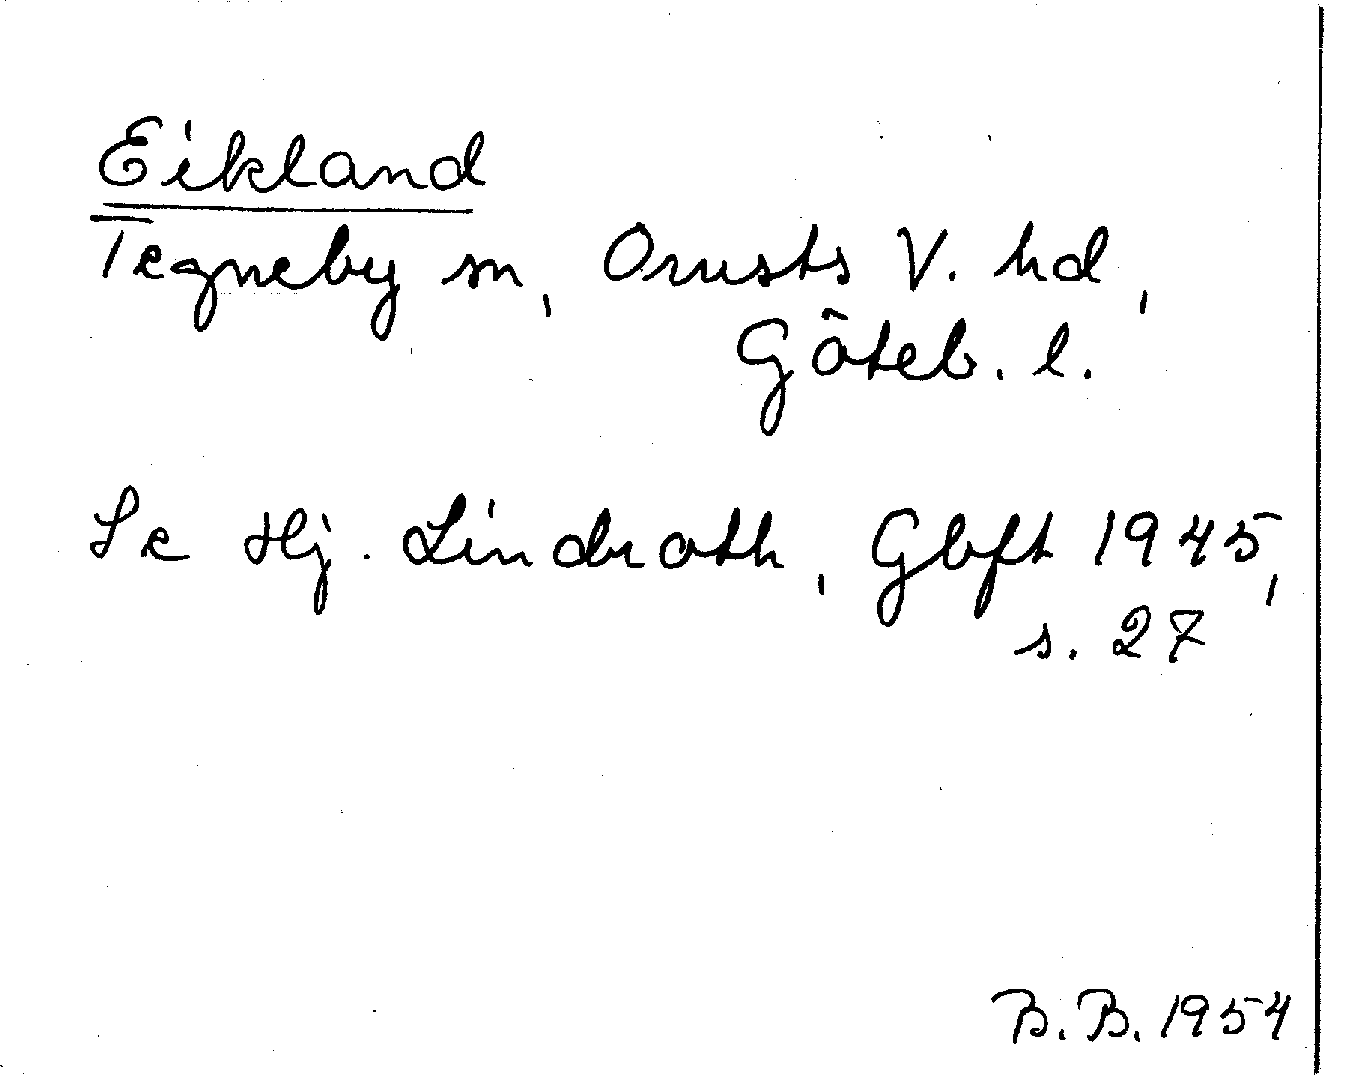 Eikland
Tegneby sn, Orusts V. hd,
Göteb. l.
Se Hj. Lindroth, Gbft 1945,
s. 27
B.B. 1954